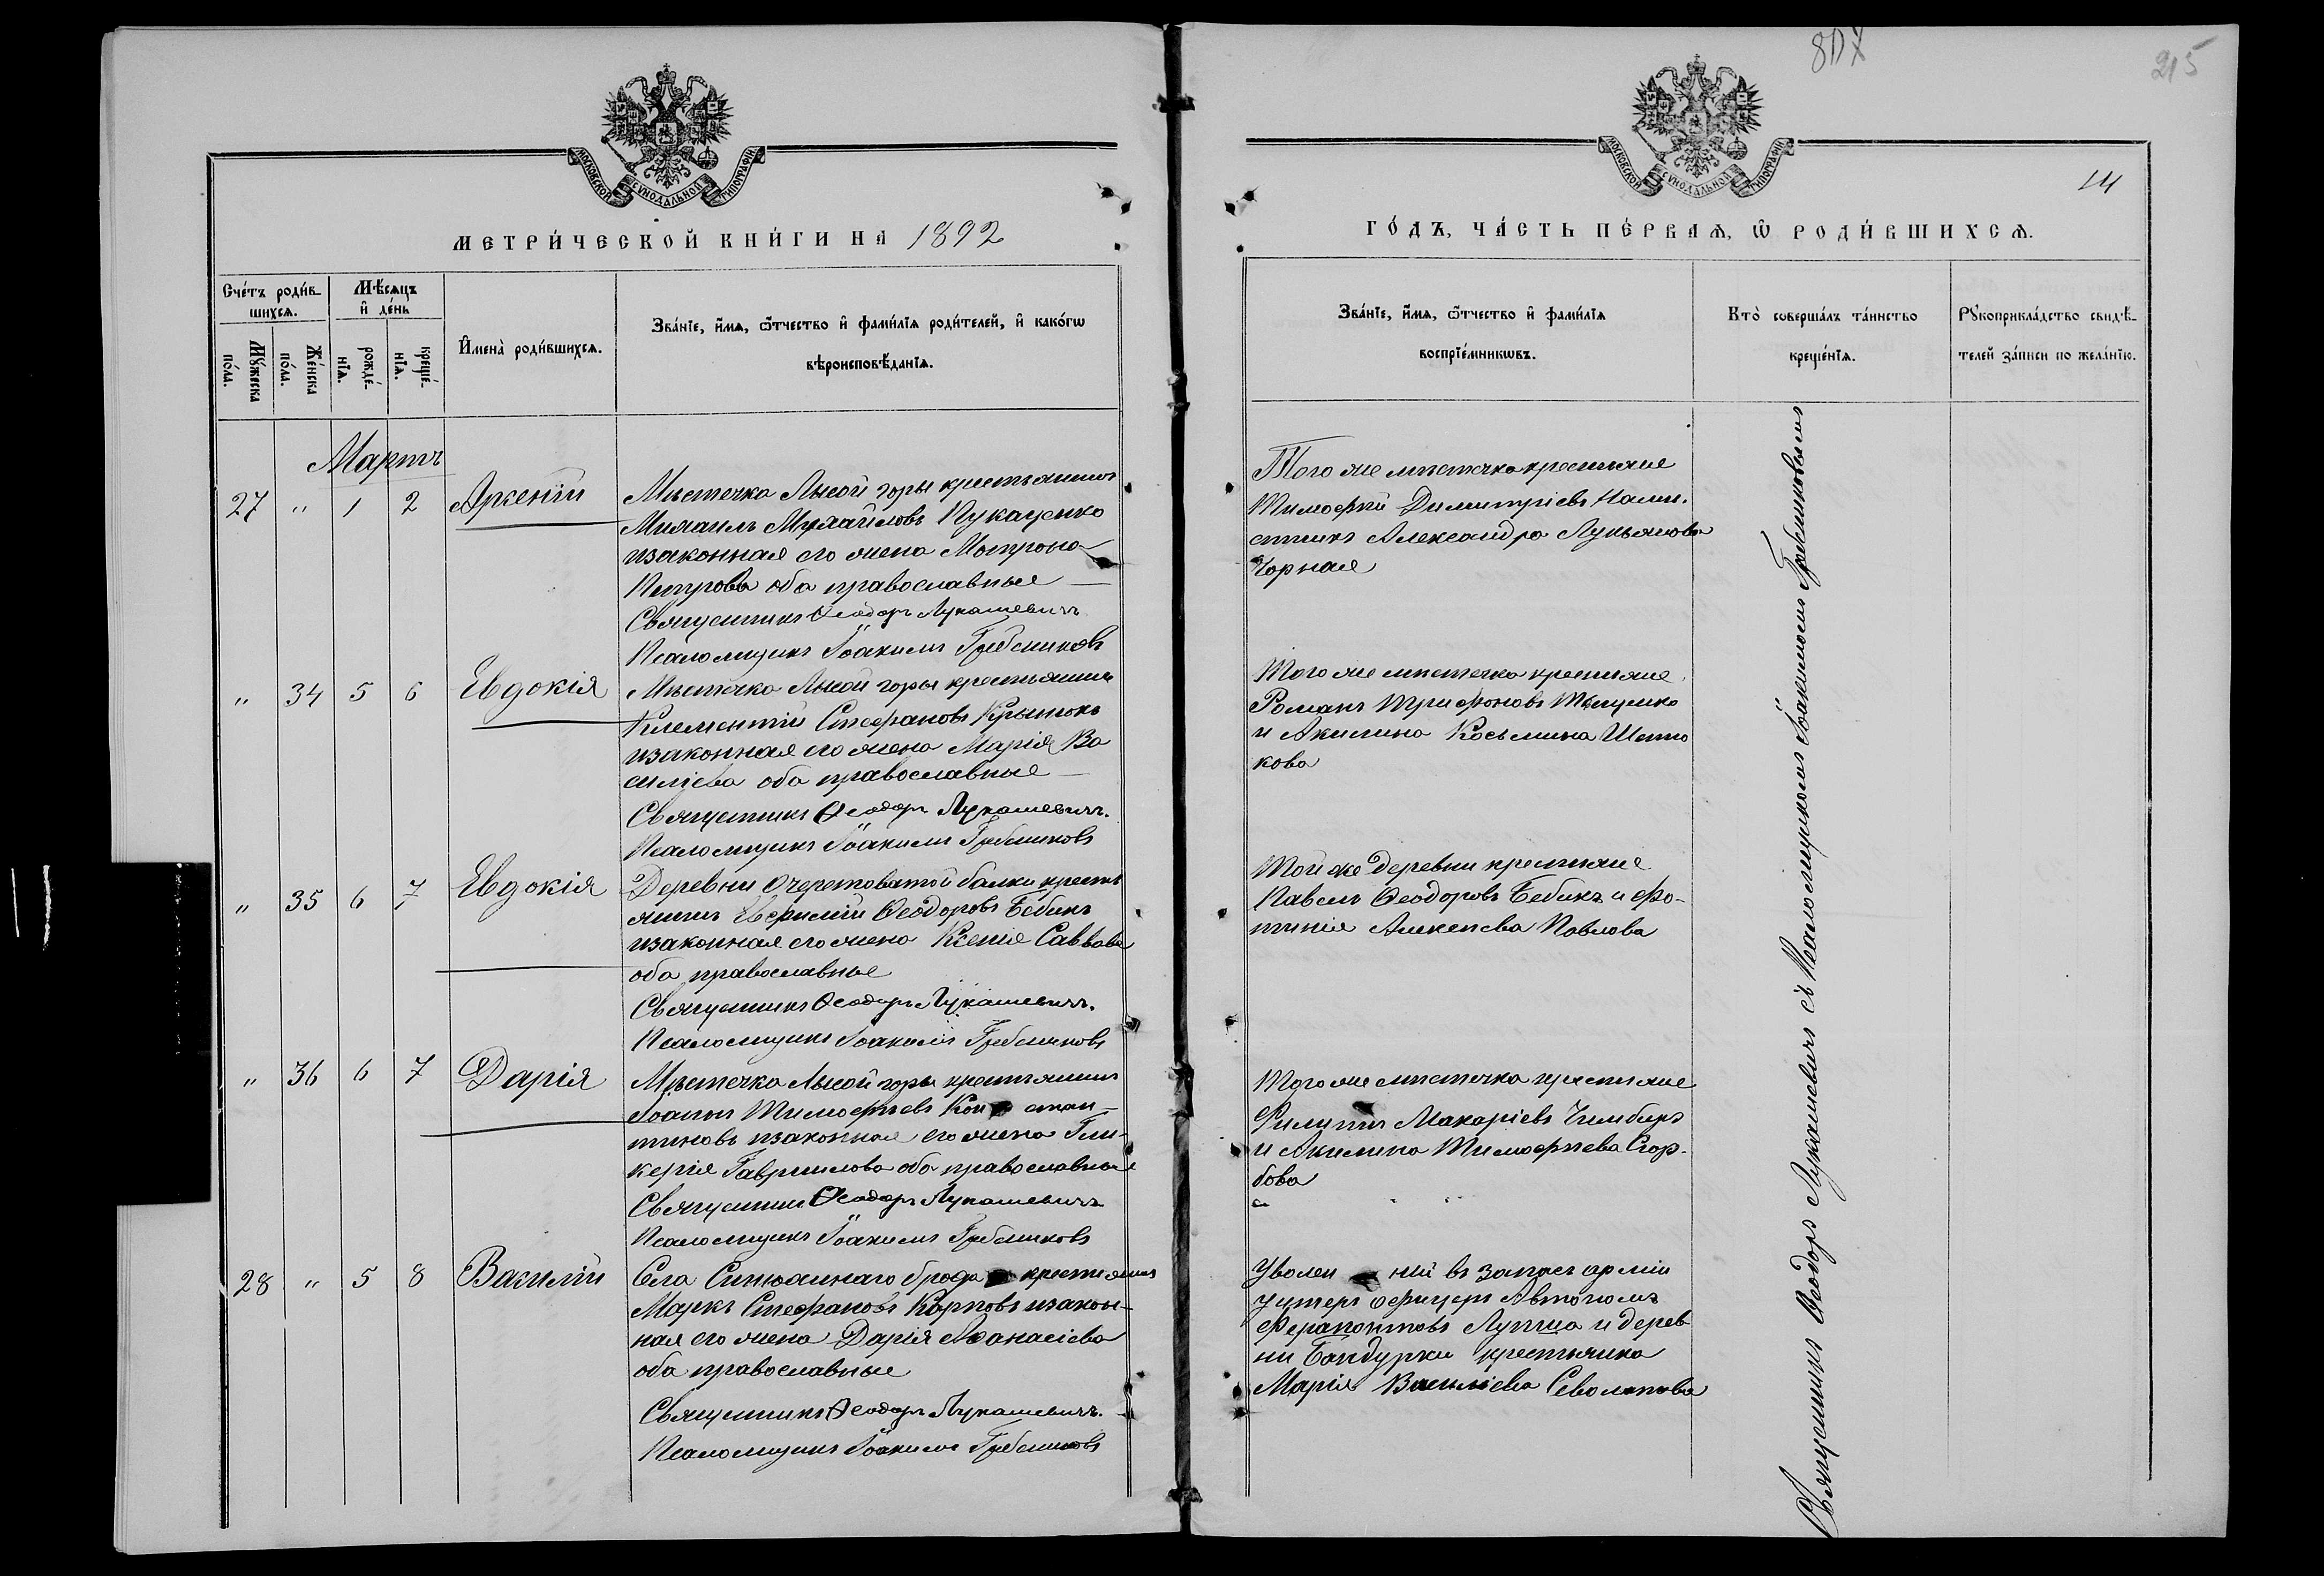 МОСКОВСКОЙ СѴНОДАЛЬНОЙ ТИПОГРАФІИ
МЕТРИ́ЧЕСКОЙ КНИ́ГИ НА 1892
Сче́тъ роди́в-
шихсѧ.
Мѣ́сѧцъ
и҆ де́нь
Мꙋ́жеска
по́ла.
Же́нска
по́ла.
рожде́-
нїѧ.
креще́-
нїѧ.
И҆мена̀ роди́вшихсѧ.
Зва́нїе, и҆́мѧ, ѻ҆́тчество и҆ фами́лїѧ роди́телей, и҆ како́гѡ
вѣроисповѣ́данїѧ.
Мартъ
27 " 1 2 Арсеній
Мѣстечка Лысой горы крестьянинъ
Михаилъ Михайловъ Пукаценко
изаконная его жена Мотрона
Петрова оба православные —
Священникъ Ѳеодоръ Лукашевичъ
Псаломщикъ Іоакимъ Гребенниковъ
" 34 5 6 Евдокія
Мѣстечка Лысой горы крестьянинъ
Климентій Стефановъ
изаконная его жена Марія Ва
силіева оба православные —
Священникъ Ѳеодоръ Лукашевичъ.
Псаломщикъ Іоакимъ Гребенниковъ
" 35 6 7 Евдокія
Деревни Очеретоватой балки кресть
янинъ Ефимій Ѳеодоровъ Бебикъ
изаконная его жена Ксенія Саввова
оба православные
Священникъ Ѳеодоръ Лукашевичъ.
Псаломщикъ Іоакимъ Гребенниковъ
" 36 6 7 Дарія
Мѣстечка Лысой горы крестьянинъ
Іоаннъ Тимофѣевъ Кон стан-
тиновъ изаконная его жена Гли-
керія Гавриилова оба православные
Священникъ Ѳеодоръ Лукашевичъ
Псаломщикъ Іоакимъ Гребенниковъ
28 " 5 8 Василій
Села Синюхинаго брода крестьянинъ
Маркъ Стефановъ Карповъ изакон-
ная его жена Дарія Аѳанасіева
оба православные
Священникъ Ѳеодоръ Лукашевичъ.
Псаломщикъ Іоакимъ Гребенниковъ
215
МОСКОВСКОЙ СѴНОДАЛЬНОЙ ТИПОГРАФІИ
14
ГО́ДЪ, ЧА́СТЬ ПЕ́РВАѦ, Ѡ҆ РОДИ́ВШИХСѦ.
Зва́нїе, и҆́мѧ, ѻ҆́тчество и҆ фами́лїѧ
воспрїе́мникѡвъ.
Кто̀ соверша́лъ та́инство
креще́нїѧ.
Рꙋкоприкла́дство свидѣ́-
телей за́писи по жела́нїю.
Того же мѣстечка крестьяне
Тимофей Димитріевъ
Александра Лукьянова
Чорная
Того же мѣстечка крестьяне
Романъ Трифоновъ
и Акилина Косьмина
кова
Той же деревни крестьяне
Павелъ Ѳеодоровъ Бебикъ и Фо-
тинія Алексѣева Павлова
Того же мѣстечка крестьяне
Филиппъ Макаріевъ Чимбиръ
и Акилина Тимофѣева Скор-
бова
Уволен ный въ запасъ арміи
унтеръ офицеръ Автономъ
Ферапонтовъ Луппа и дерев
ни Бандурки крестьянка
Марія Василіева
Священникъ Ѳеодоръ Лукашевичъ съ Псаломщикомъ Іоакимомъ Гребенниковымъ